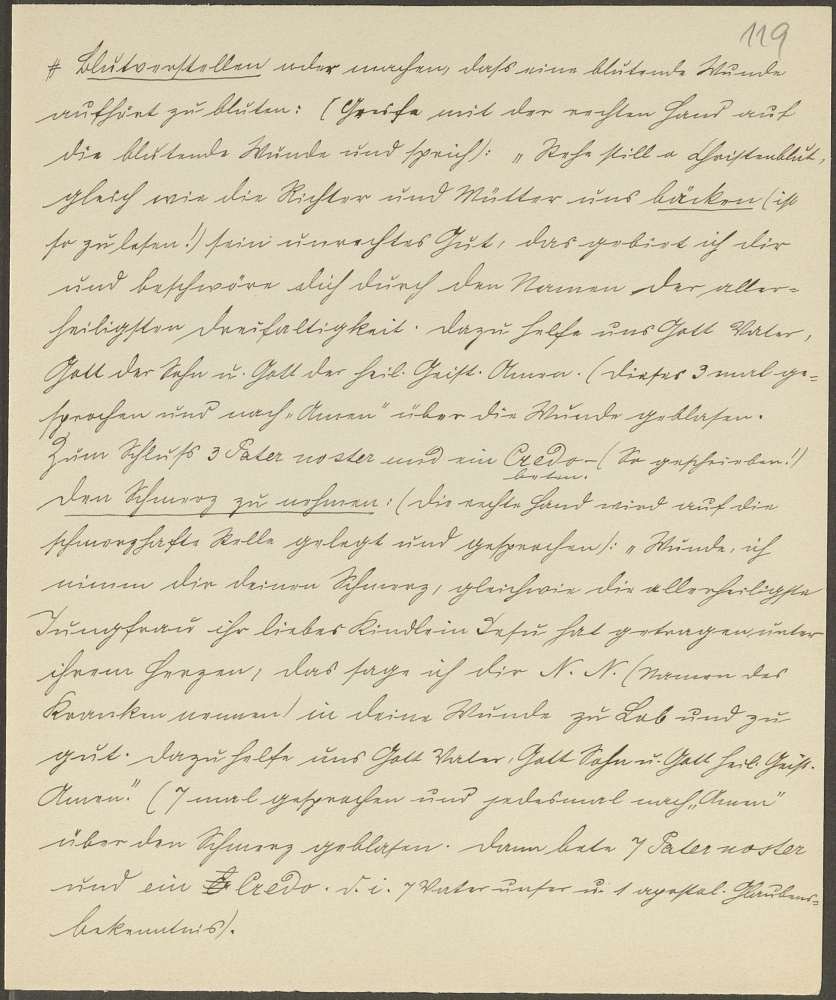 119
# Blutverstellen oder machen, daß eine blutende Wunde
aufhört zu bluten: (Greife mit der rechten Hand auf
die blutende Wunde und sprich): „Stehe still o Christenblut,
gleich wie die Richter und Mütter uns bäcken (ist
so zu lesen!) sein unrechtes Gut, das gebiet ich dir
und beschwöre dich durch den Namen der aller=
heiligsten Dreifaltigkeit. Dazu helfe uns Gott Vater,
Gott der Sohn u. Gott der heil. Geist. Amen. (Dieses 3 mal ge=
sprochen und nach „Amen" über die Wunde geblasen.
Zum Schluß 3 Pater noster und ein Credo – (So geschrieben!)
beten.
Den Schmerz zu nehmen: (die rechte Hand wird auf die
schmerzhafte Stelle gelegt und gesprochen): „Wunde, ich
nimm dir deinen Schmerz, gleichwie die allerheiligste
Jungfrau ihr liebes Kindlein Jesu hat getragen unter
ihrem Herzen, das sage ich dir N. N. (Namen des
Kranken nennen) in deine Wunde zu Lob und zu
gut. Dazu helfe uns Gott Vater, Gott Sohn u. Gott heil. Geist.
Amen." (7 mal gesprochen und jedesmal nach „Amen"
über den Schmerz geblasen. Dann bete 7 Pater noster
und ein Credo. d. i. 7 Vater unser u. 1 apostol. Glaubens=
bekenntnis).